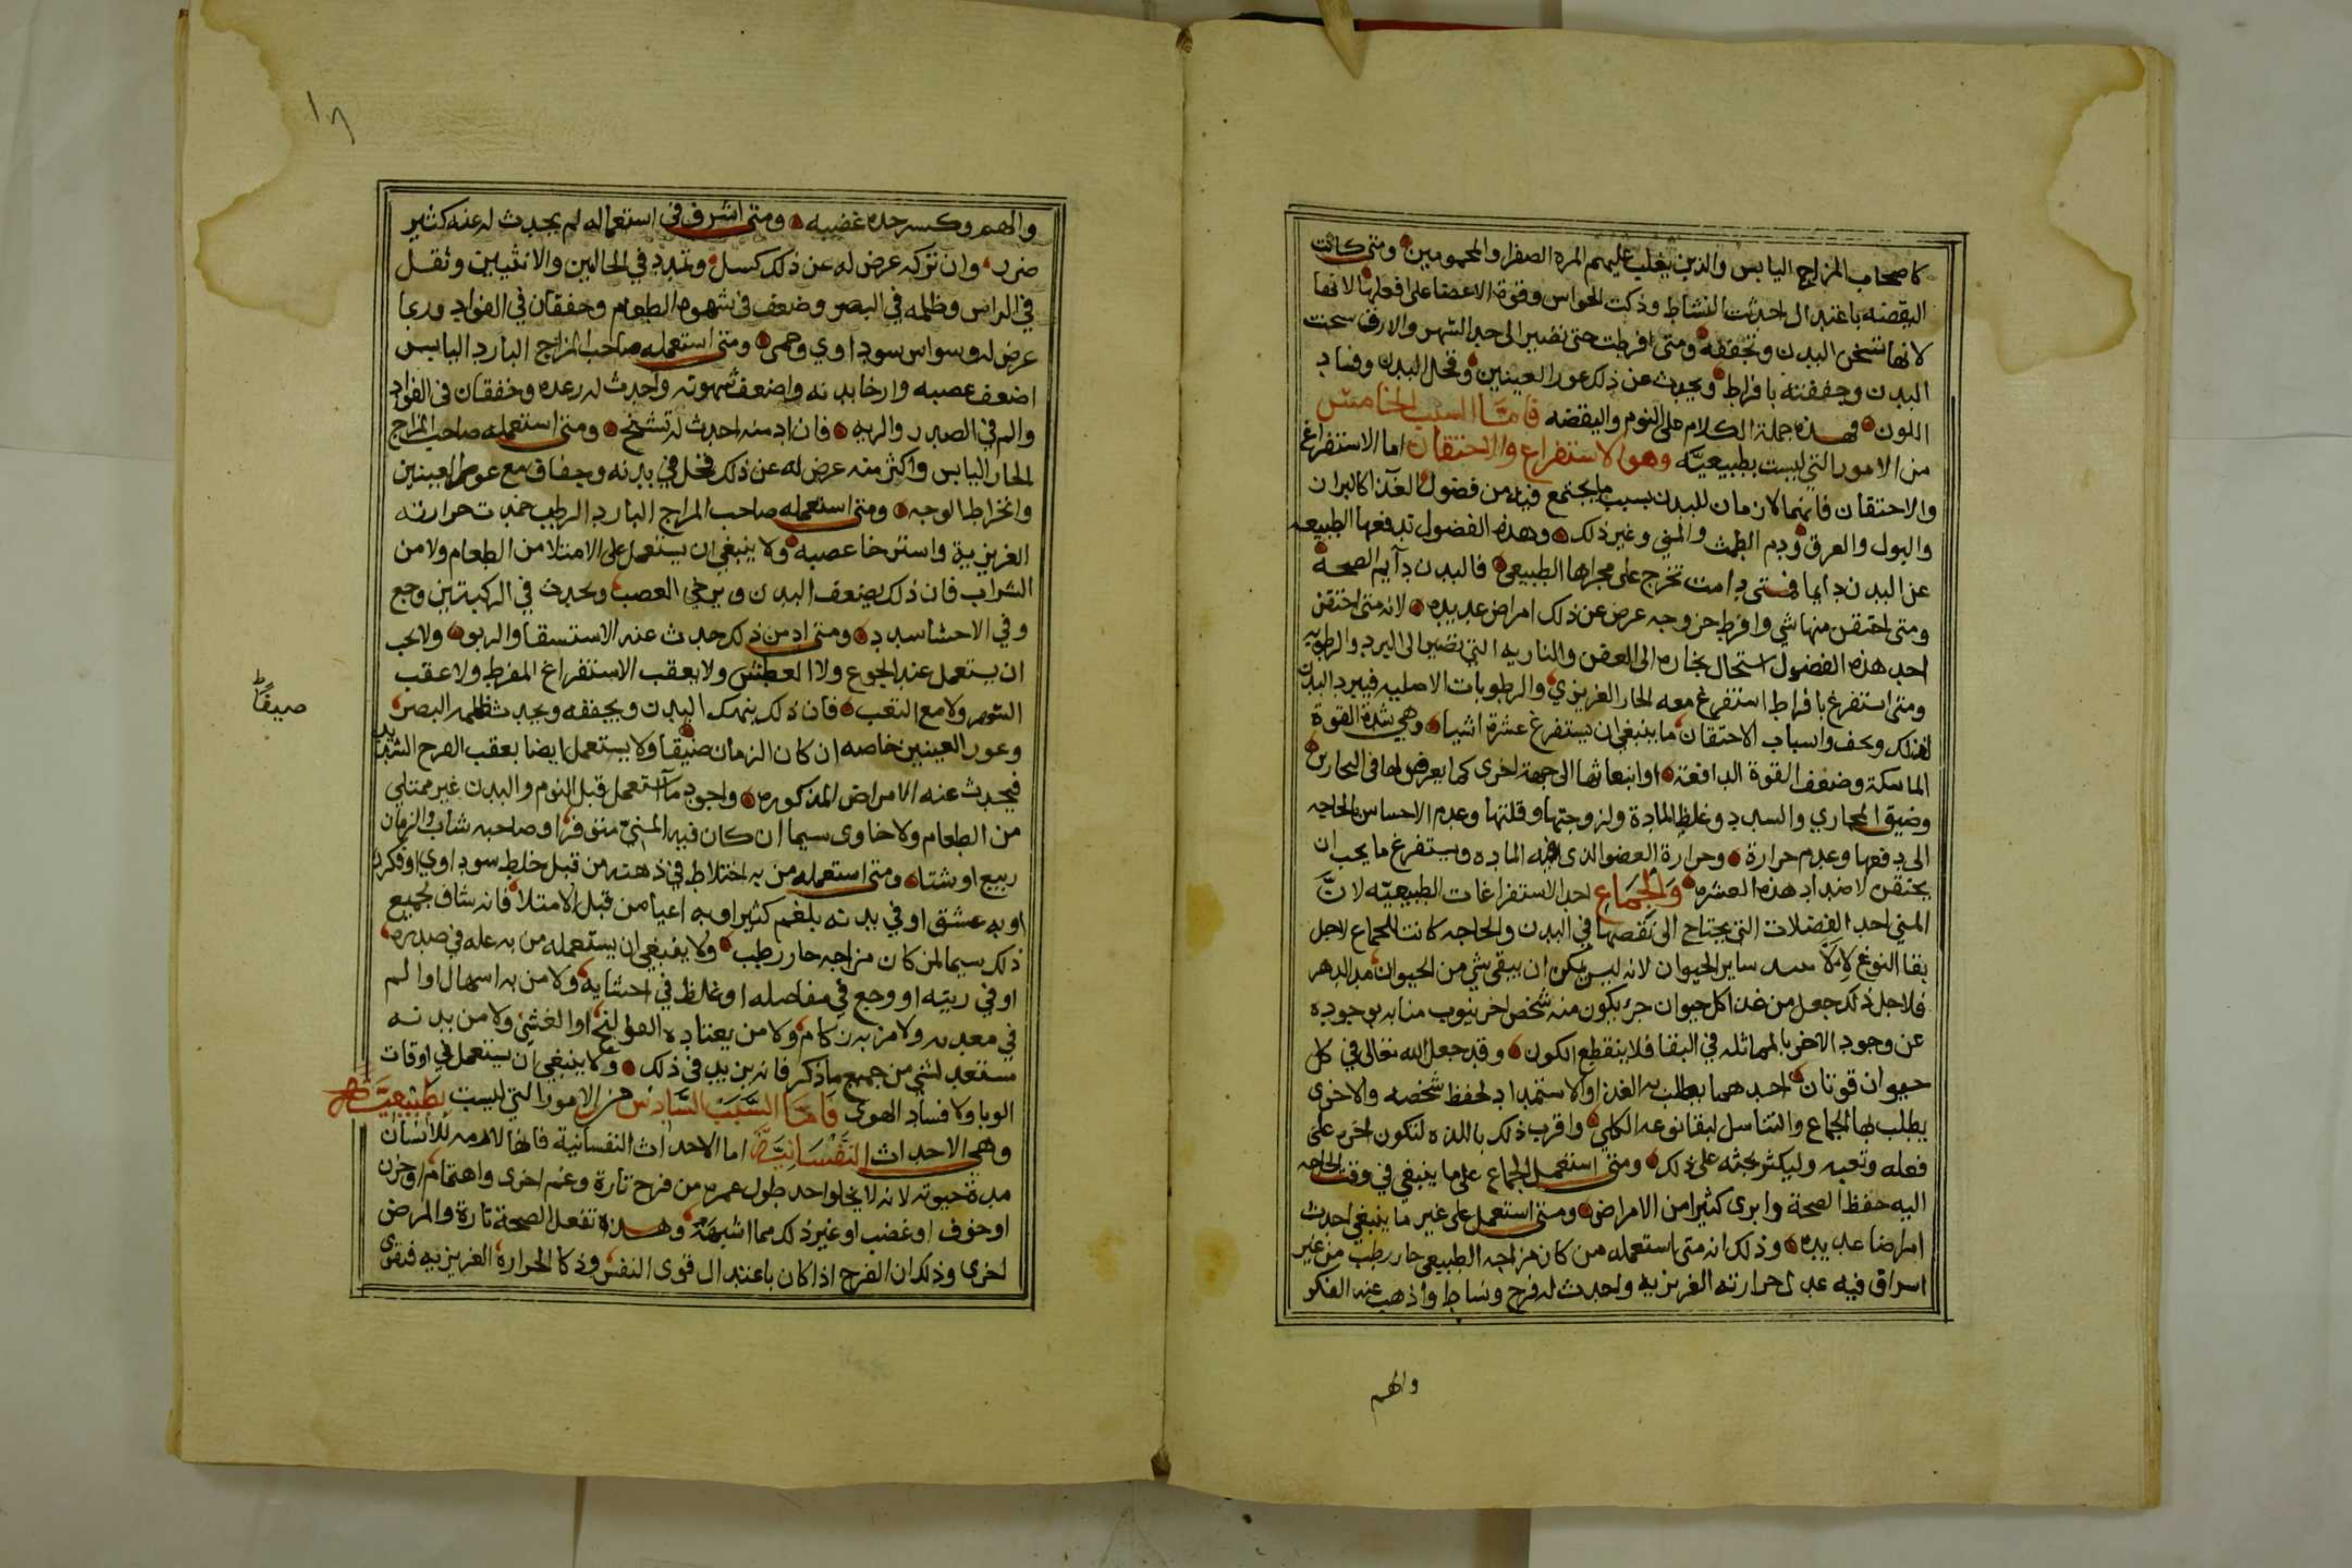 كاصحاب المزاج اليابس والذين يغلب عليهم المره الصفرا والمحمومين ومتى كانت
اليقضه باعتدال احدثت النشاط وذكت الحواس وقوة الاعضا على افعلها لانها
لانها تسخن البدن وتجففه ومتى افرطت حتى تصير الى حد السهر والارق سخنت
البدن وجففته بافراط ويحدث عن ذلك غور العينين وقحل البدن وفساد
اللون فهذه جملة الكلام على النوم واليقضه فامَّا السبب الخامس
من الامور التي ليست بطبيعيَّه وهو الاستفراغ والاحتقان اما الاستفراغ
والاحتقان فانهما لازمان للبدن بسبب ما يجتمع فيه من فضول الغذا كالبراز
والبول والعرق ودم الطمث والمني وغير ذلك وهذه الفضول تدفعها الطبيعه
عن البدن دايما فمتى دامت تخرج على مجراها الطبيعي فالبدن دآيم الصحة
ومتى احتقن منها شي وافرط خروجه عرض عن ذلك امراض عديده لانه متى احتقن
احد هذه الفضول استحال بخاره الى العفن والناريه التي تصير الى البرد والرطوبه
ومتى استفرغ بافراط استفرغ معه الحار الغريزي والرطوبات الاصليه فيبرد البدن
لذلك ويجف واسباب الاحتقان ما ينبغي ان يستفرغ عشرة اشيا وهي شدة القوة
الماسكة وضعف القوة الدافعة او انبعاثها الى جهة اخرى كما يعرض لها في البحارين
وضيق المجاري والسدد وغلظ المادة ولزوجتها وقلتها وعدم الاحساس بالحاجه
الى دفعها وعدم حرارة وحرارة العضو الذى فيه الماده ويستفرغ ما يجب ان
يحتقن لاضداد هذه العشره وَالجمَاع احد الاستفراغات الطبيعيّه لانَّ
المني احد الفضلات التي يحتاج الى نقصها في البدن والحاجه كانت للجماع لاجل
بقا النوع ساير الحيوان لانه ليس يمكن ان يبقى شي من الحيوان مدا الدهر
فلاجل ذلك جعل من غذا كل حيوان جزء يكون منه شخص اخر ينوب منابه بوجوده
عن وجود الاخر بالمماثله في البقا فلا ينقطع الكون وقد جعل الله تعالى في كل
حيوان قوتان احدهما يطلب به الغذا والاستمداد لحفظ شخصه والاخرى
يطلب لها الجماع والتناسل لبقا نوعه الكلي واقرب ذلك باللذه لتكون اخر على
فعله وتعبه وليكثر بحثه على ذلك ومتى استعمل الجماع على ما ينبغي في وقت الحاجه
اليه حفظ الصحة وابرى كثيرا من الامراض ومتى استعمل على غير ما ينبغي احدث
امراضا عديده وذلك انه متى استعمله من كان مزاجه الطبيعي حار رطب من غير
اسراف فيه عدل حرارته الغريزيه واحدث له فرح ونشاط واذهب عنه الفكر
والهم
١٨
والهم وكسر حده غضبه ومتى اشرف في استعماله لم يحدث له عنه كثير
ضرر وان تركه عرض له عن ذلك كسل وتمدد في الحالبين والانثيين وثقل
في الراس وظلمه في البصر وضعف في شهوه الطعام وخفقان في الفواد وربما
عرض له وسواس سوداوي وحمى ومتى استعمله صاحب المزاج البارد اليابس
اضعف عصبه وارخا بدنه واضعف شهوته واحدث له رعده وخفقان فى الفواد
والم في الصدر والريه فان ادمنه احدث له تشنج ومتى استعمله صاحب المزاج
الحار اليابس واكثر منه عرض له عن ذلك قحل في بدنه وجفاف مع غور العينين
وانخراط الوجه ومتى استعمله صاحب المزاج البارد الرطب خمدت حرارته
الغريزية واسترخا عصبه ولا ينبغي ان يستعمل على الامتلا من الطعام ولا من
الشراب فان ذلك يضعف البدن ويرخي العصب ويحدث في الركبتين وجع
وفي الاحشا سدد ومتى ادمن ذلك حدث عنه الاستسقا والربو ولا يجب
ان يستعمل عند الجوع ولا العطش ولا بعقب الاستفراغ المفرط ولا عقب
السهر ولا مع التعب فان ذلك ينهك البدن ويجففه ويحدث ظلمه البصر
وغور العينين خاصه ان كان الزمان ضيقا ولا يستعمل ايضا بعقب الفرح الشديد
صيفًا صح
فيحدث عنه الامراض المذكوره واجود ما استعمل قبل النوم والبدن غير ممتلي
من الطعام ولا خاوى سيما ان كان فيه المني متوفرا وصاحبه شاب والزمان
ربيع او شتا ومتى استعمله من به اختلاط في ذهنه من قبل خلط سوداوي او فكر
او به عشق او في بدنه بلغم كثير او به اعيا من قبل الامتلا فانه شاف لجميع
ذلك سيما لمن كان مزاجه حار رطب ولا ينبغي ان يستعمله من به عله في صدره
او في ريته او وجع في مفاصله او غلظ في احشايه ولا من به اسهال او الم
في معدته ولا من به زكام ولا من يعتاده القولنج او الغشي ولا من بدنه
مستعد لشي من جميع ما ذكر فانه يزيد في ذلك ولا ينبغي ان يستعمل في اوقات
الوبا ولا فساد الهوى فَامَّا السَّبَبْ السَّادِسْ من الامور التي ليست بطَبِيْعِيَّةِ
وهي الاحداث النَّفْسَانِيَّة اما الاحداث النفسانية فانها لازمه للانسان
مدة حيوته لانه لا يخلوا احد طول عمره من فرح تارة وغم اخرى واهتمام او حزن
او خوف او غضب او غير ذلك مما اشبهه وهذه تفعل الصحة تارة والمرض
اخرى وذلك ان الفرح اذا كان باعتدال قوى النفس وذكا الحرارة الغريزيه فتقوى